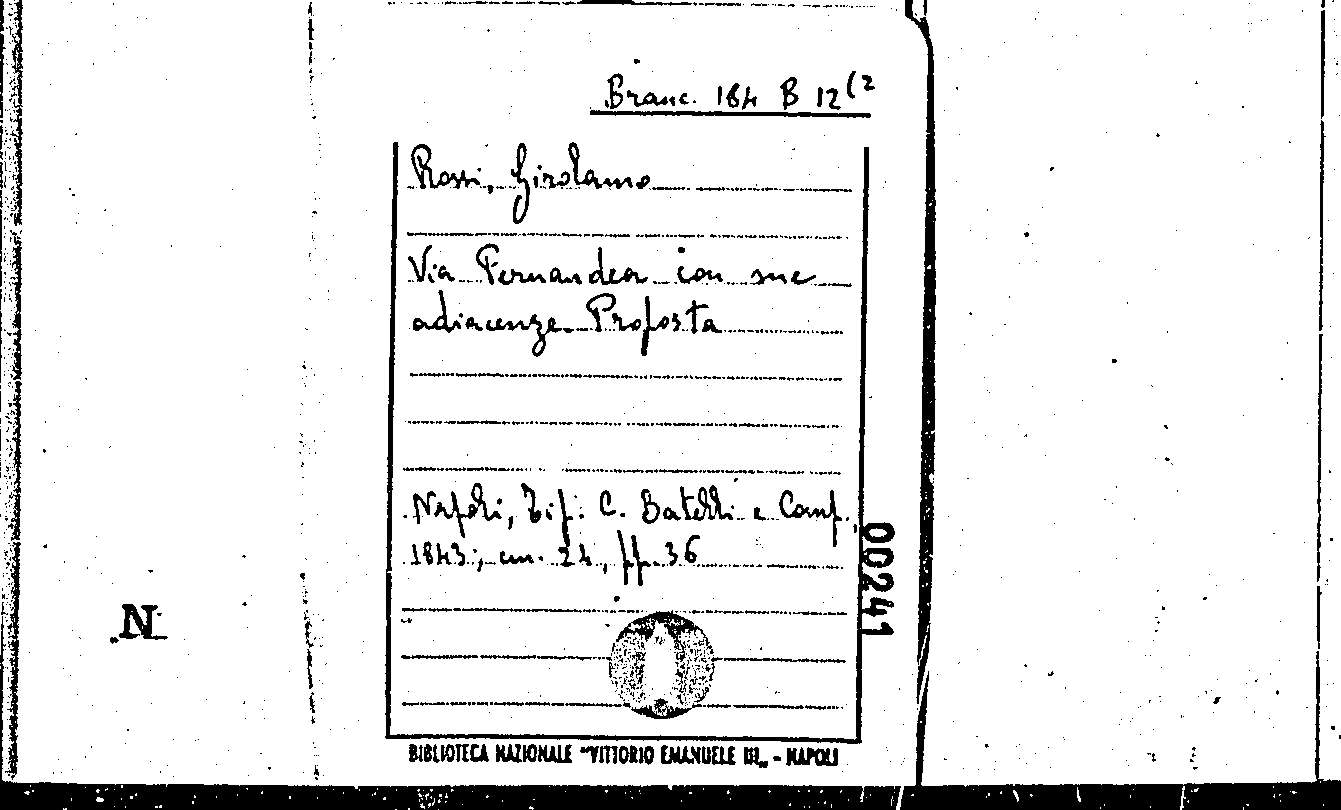 Branc. 184 B 12(2
Rossi, Girolamo
Via Fernandea con sue
adiacenze. Proposta
Napoli, Tip. C. Batelli e Comp.,
1843; cm. 24, pp. 36
00241
N
BIBLIOTECA NAZIONALE "VITTORIO EMANUELE III„ - NAPOLI